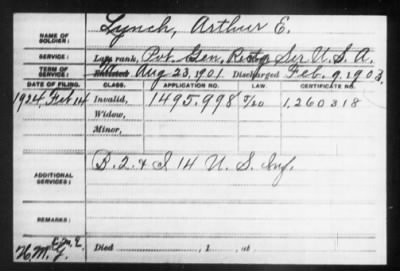 NAME OF SOLDIER: Lynch, Arthur E.
SERVICE: Late rank, Pvt. Gen. Rctg Ser. U. S. A.
TERM OF SERVICE: Enlisted Aug 23, 1901. Discharged Feb. 9. 1903.
DATE OF FILING. CLASS. APPLICATION NO. LAW. CERTIFICATE NO.
1924, Feb 14 Invalid, 1495.998 1,260318
Widow,
Minor,
ADDITIONAL SERVICES: B. 2. & I 14 U. S. Inf.
REMARKS:
Died